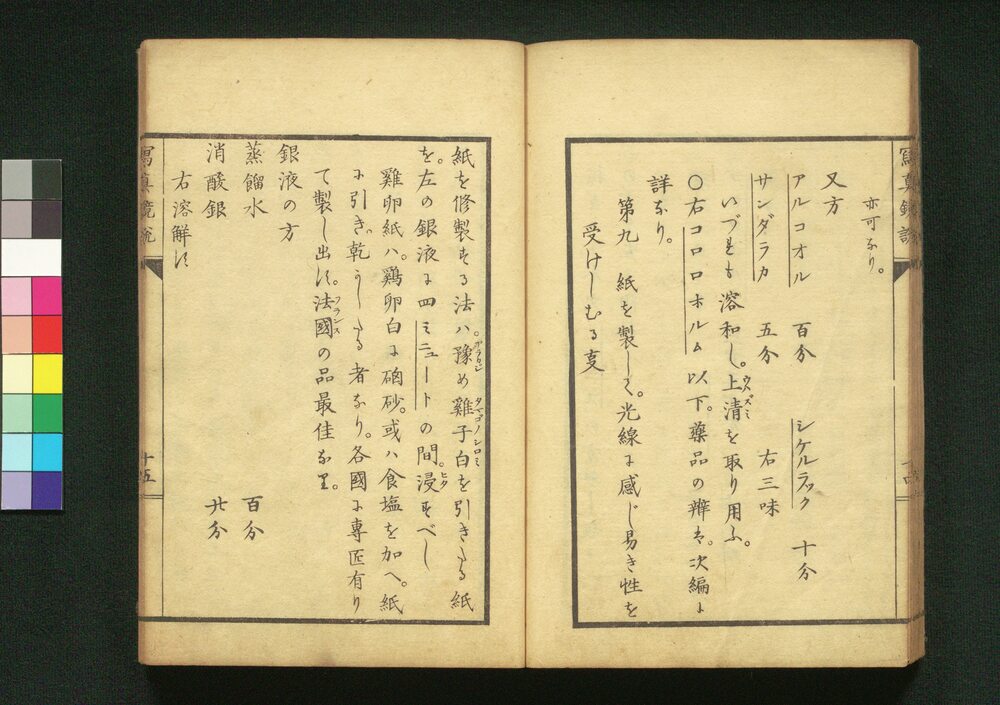 寫真鏡説
亦可なり。
又方
アルコオル 百分 シケルラック 十分
サンダラカ 五分 右三味
いづれも溶和し。上清を取り用ふ。
ウハズミ
〇右コロロホルム以下。藥品の辨は。次編に
詳なり。
第九 紙を製して。光線に感じ易き性を
受けしむる叓
紙を修製する法ハ。豫め雞子白を引きたる紙
アラカジ タマゴノシロミ
を。左の銀液に四ミニュートの間。浸すべし
ヒタ
雞卵紙ハ。鶏卵白に硇砂。或ハ食塩を加へ。紙
に引き。乾かしたる者なり。各國に専匠有り
て製し出す。法國の品最佳なり。
フランス
銀液の方
蒸餾水 百分
消酸銀 廿分
右溶解す
寫真鏡説
十五